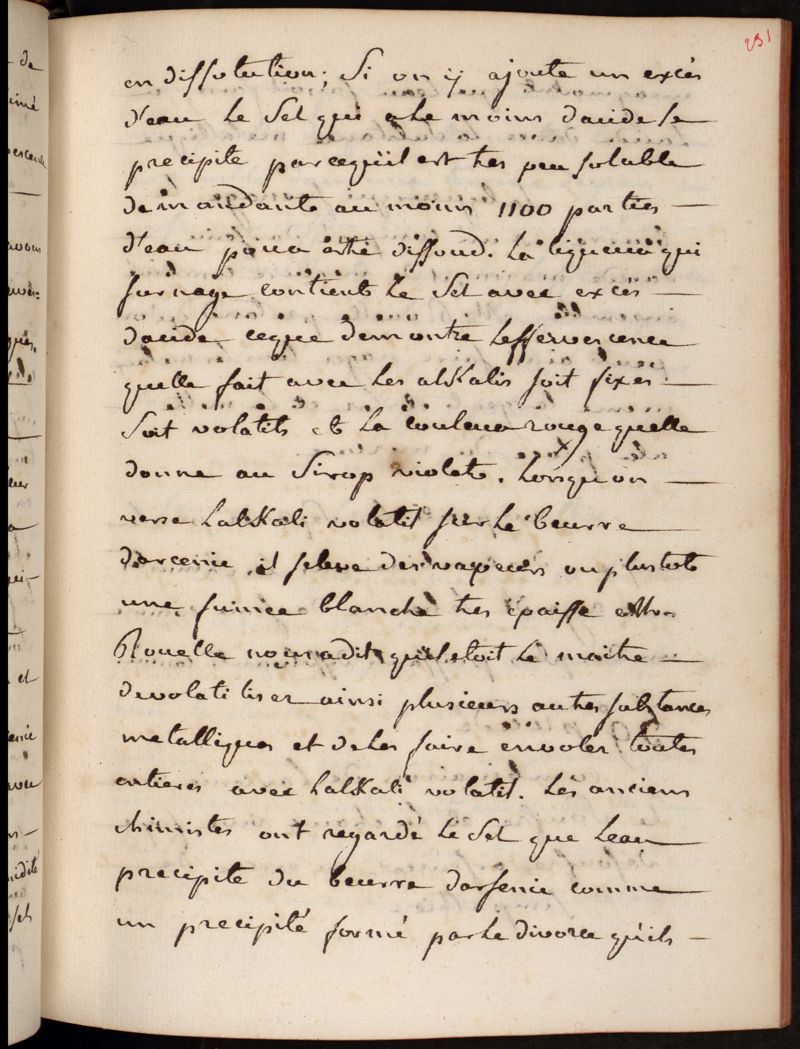 231
en dissolution; Si on y ajoute un excés
d'eau le Sel qui a le moins dacide se
precipite parcequ'il est tres peu soluble
demandant au moins 1100 parties —
d'eau pour etre dissoud. La liqueur qui
surnage contient le Sel avec excés —
dacide ceque demontre Leffervescence
quelle fait avec Les alkalis soit fixes —
Soit volatils et La couleur rouge quelle
donne au Sirop violats. Lorsquon —
verse Lalkali volatil sur Le beurre
darcenic il seleve des vapeurs ou plustots
une fumée blanche tres épaisse et Mr.
Rouelle nous a dit qu'il etoit Le maitre —
de volatiliser ainsi plusieurs autres substances
metalliques et de les faire envoler toutes
entieres avec Lalkali volatil. Les anciens
chimistes ont regardé le Sel que Leau
precipite du beurre darsenic comme
un precipité formé par Le divorce qu'ils —